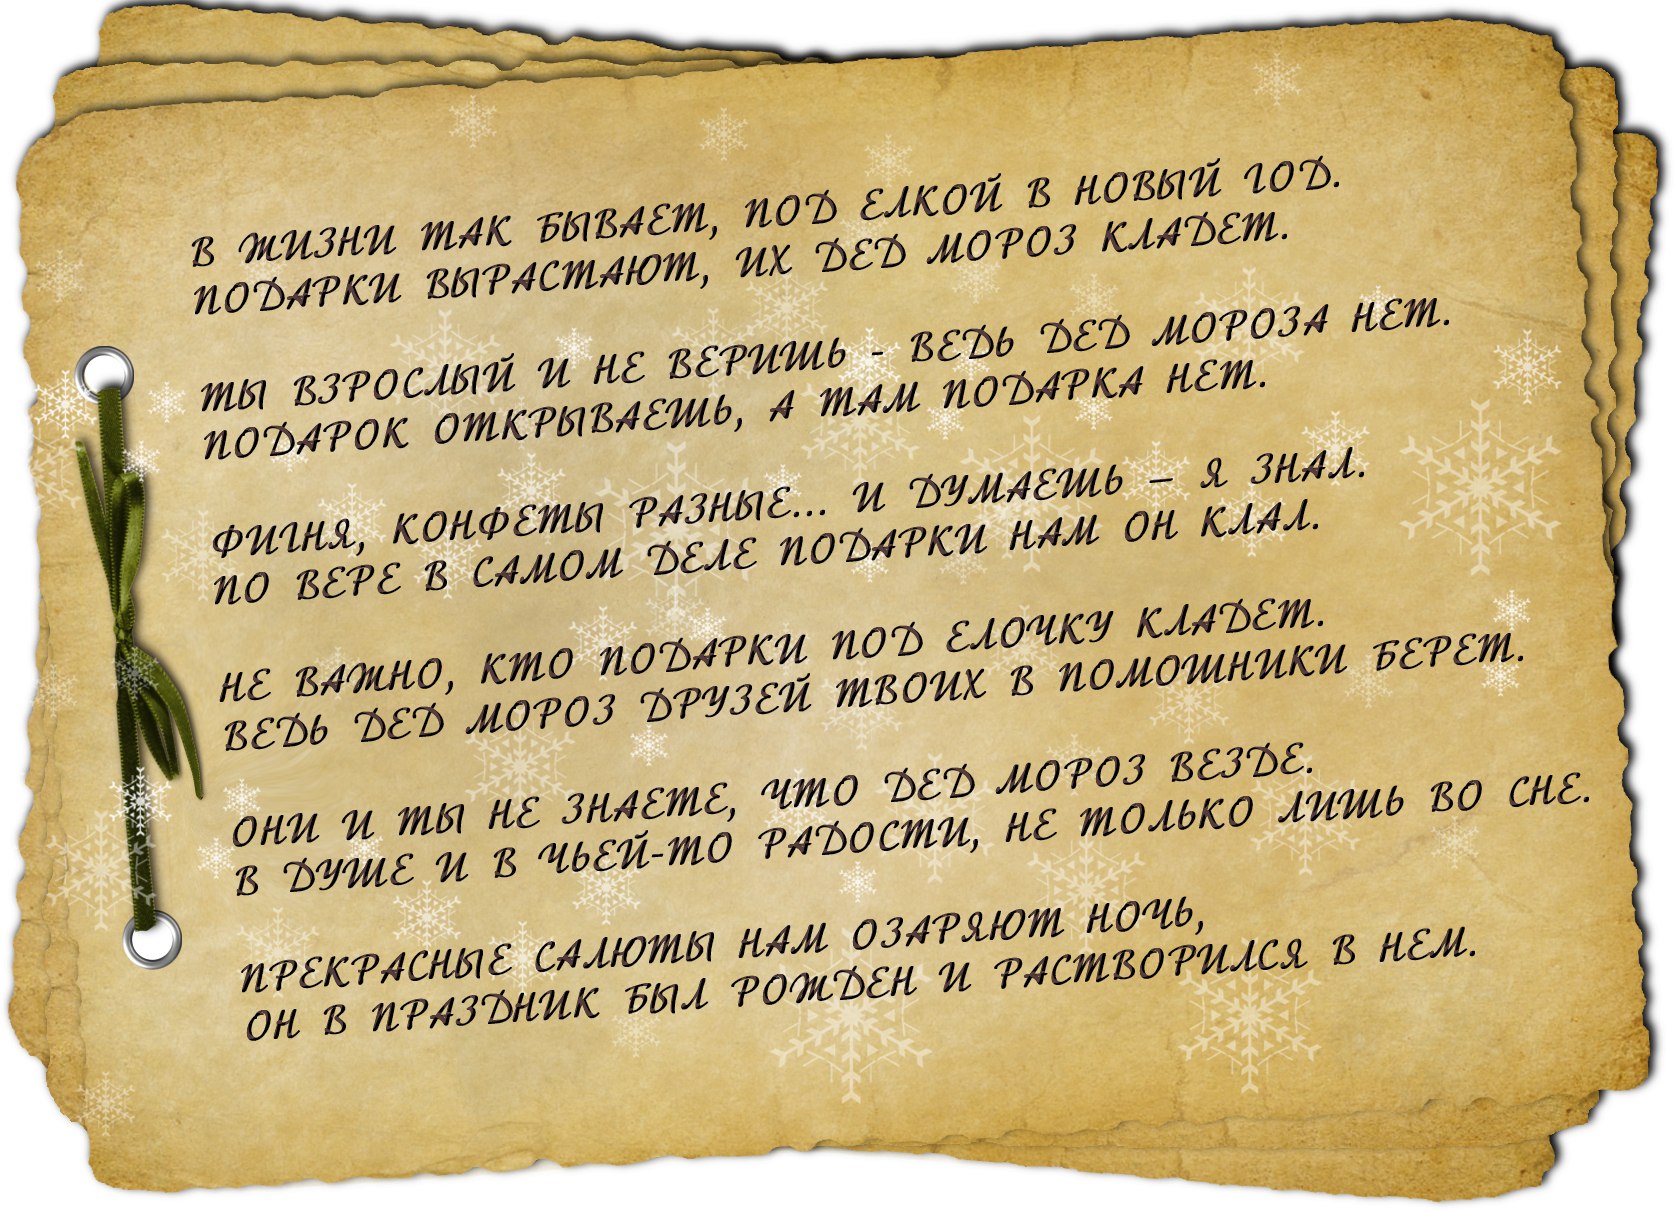 В ЖИЗНИ ТАК БЫВАЕТ, ПОД ЕЛКОЙ В НОВЫЙ ГОД.
ПОДАРКИ ВЫРАСТАЮТ, ИХ ДЕД МОРОЗ КЛАДЕТ.
ТЫ ВЗРОСЛЫЙ И НЕ ВЕРИШЬ - ВЕДЬ ДЕД МОРОЗА НЕТ.
ПОДАРОК ОТКРЫВАЕШЬ, А ТАМ ПОДАРКА НЕТ.
ФИГНЯ, КОНФЕТЫ РАЗНЫЕ... И ДУМАЕШЬ – Я ЗНАЛ.
ПО ВЕРЕ В САМОМ ДЕЛЕ ПОДАРКИ НАМ ОН КЛАЛ.
НЕ ВАЖНО, КТО ПОДАРКИ ПОД ЕЛОЧКУ КЛАДЕТ.
ВЕДЬ ДЕД МОРОЗ ДРУЗЕЙ ТВОИХ В ПОМОШНИКИ БЕРЕТ.
ОНИ И ТЫ НЕ ЗНАЕТЕ, ЧТО ДЕД МОРОЗ ВЕЗДЕ.
В ДУШЕ И В ЧЬЕЙ-ТО РАДОСТИ, НЕ ТОЛЬКО ЛИШЬ ВО СНЕ.
ПРЕКРАСНЫЕ САЛЮТЫ НАМ ОЗАРЯЮТ НОЧЬ,
ОН В ПРАЗДНИК БЫЛ РОЖДЕН И РАСТВОРИЛСЯ В НЕМ.